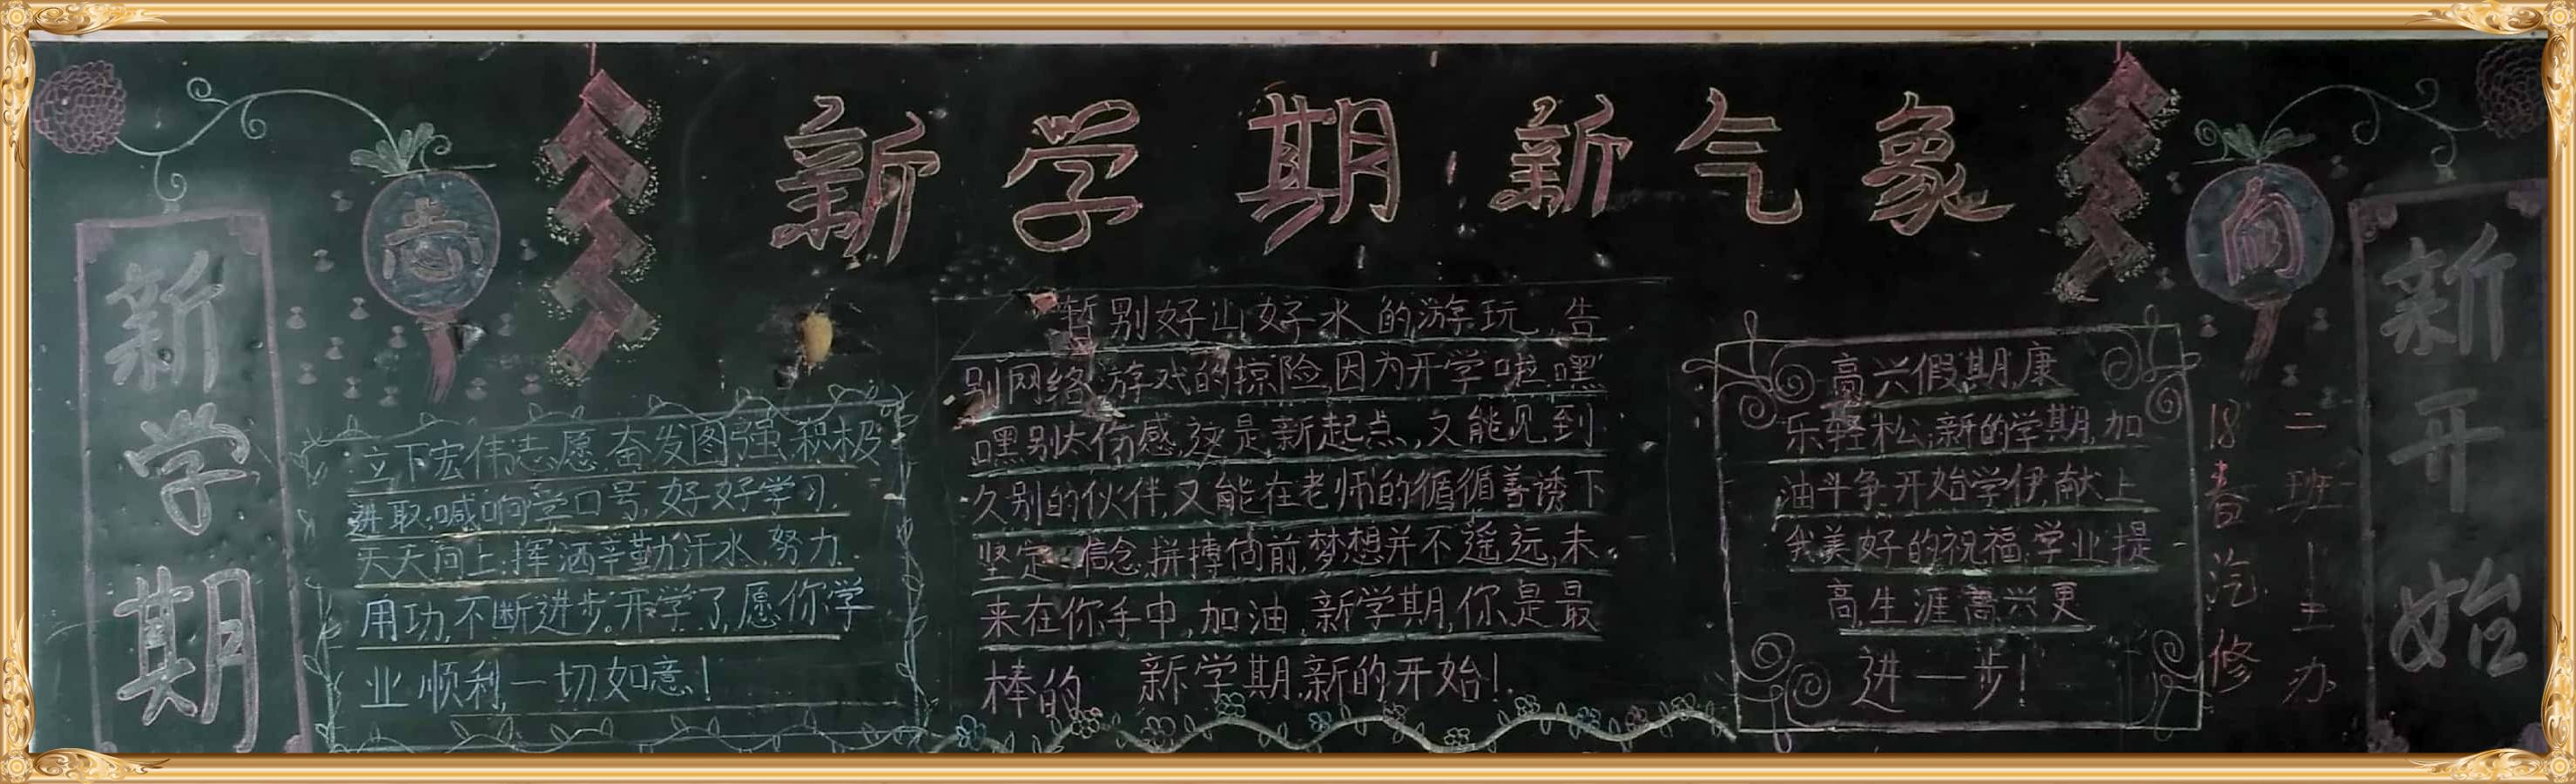 新学期新气象
新学期
志
立下宏伟志愿,奋发图强,积极
进取,喊响学口号,好好学习,
天天向上,挥洒辛勤汗水,努力
用功,不断进步。开学了,愿你学
业顺利,一切如意!
暂别好山好水的游玩,告
别网络游戏的惊险,因为开学啦,嘿
嘿别太伤感,这是新起点,又能见到
久别的伙伴,又能在老师的循循善诱下
坚定信念,拼搏向前,梦想并不遥远,未
来在你手中,加油,新学期,你是最
棒的 新学期,新的开始!
高兴假期,康
乐轻松,新的学期,加
油斗争,开始学伊,献上
我美好的祝福,学业提
高,生涯高兴更
进一步!
向
18春汽修
二班主办
新开始